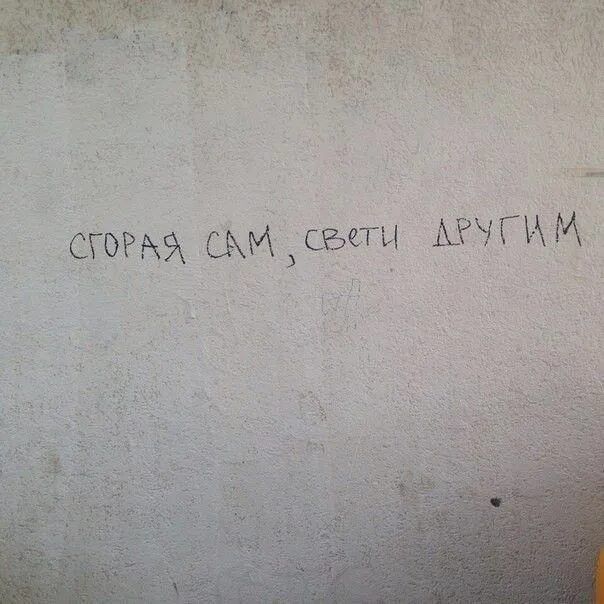 СГОРАЯ САМ, СВЕТИ ДРУГИМ